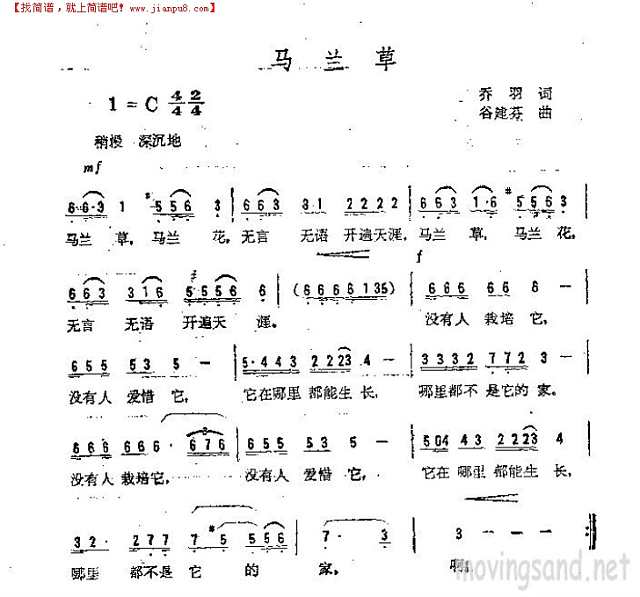 【找简谱，就上简谱吧！www.jianpu8.com】
马兰草
1 = C 4/4 2/4
乔羽 词
谷建芬 曲
稍慢 深沉地
mf
6 6·3 1 #5 5 6 3 | 6 6 3 3 1 2 2 2 2 | 6 6 3 1·6 #5 5 6 3 |
马兰 草，马兰 花，无言 无语 开遍天涯，马兰 草，马兰 花，
f
6 6 3 3 1 6 5 5 5 6 6 | (6 6 6 6 6 1 3 5) | 6 6 6 6 6 6 −|
无言 无语 开遍天 涯。 没有人 栽培 它，
6 5 5 5 3 5 − | 5·4 4 3 2 2 2 3 4 | 3 3 3 2 7 7 2 3 − |
没有人 爱惜 它， 它在哪里 都能生 长， 哪里都不 是它的 家。
6 6 6 6 6 6· 6 7 6 | 6 5 5 5 3 5 − | 5 0 4 4 3 2 2 2 3 4 |
没有人 栽培它， 没有人 爱惜 它， 它在 哪里 都能生 长，
3 2· 2 7 7 #7 5 5 5 6 | 7· 3 | 3 − :||
哪里 都不是 它 的 家， 啊。
movingsand.net